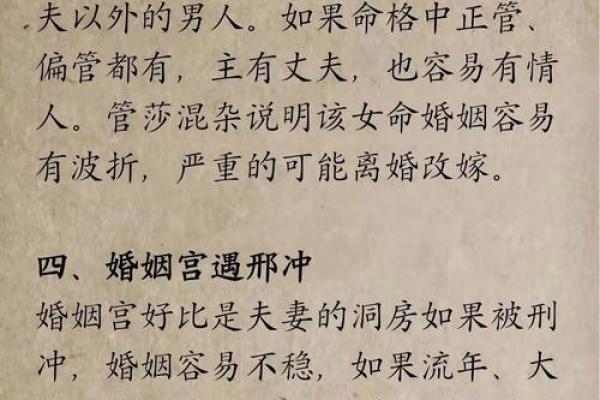 夫以外的男人。如果命格中正管、
偏管都有，主有丈夫，也容易有情
人。管莎混杂说明该女命婚姻容易
有波折，严重的可能离婚改嫁。
四、婚姻宫遇邢冲
婚姻宫好比是夫妻的洞房如果被刑
冲，婚姻容易不稳，如果流年、大